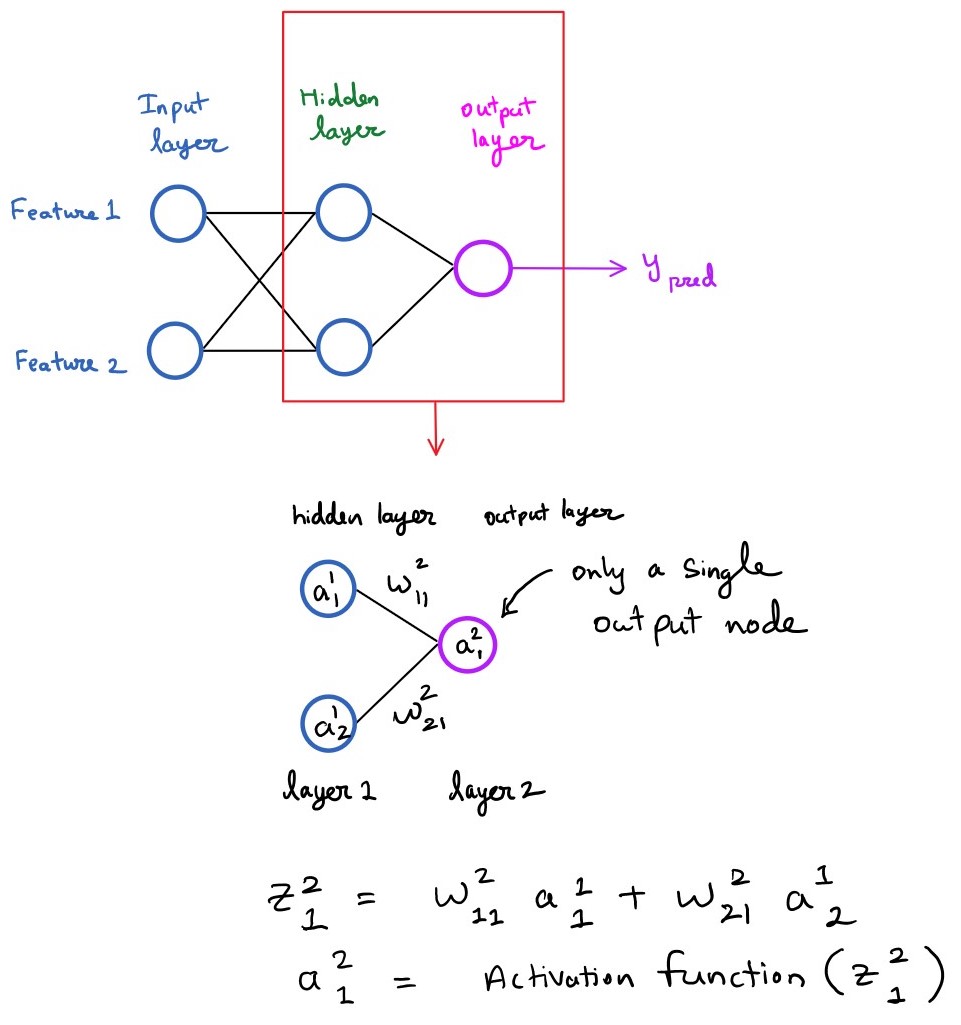 Input layer
Hidden layer
output layer
Feature 1
Feature 2
y pred
hidden layer
output layer
a¹₁
w²₁₁
a²₁
only a single
output node
a¹₂
w²₂₁
layer 1
layer 2
z²₁ = w²₁₁ a¹₁ + w²₂₁ a¹₂
a²₁ = Activation function (z²₁)